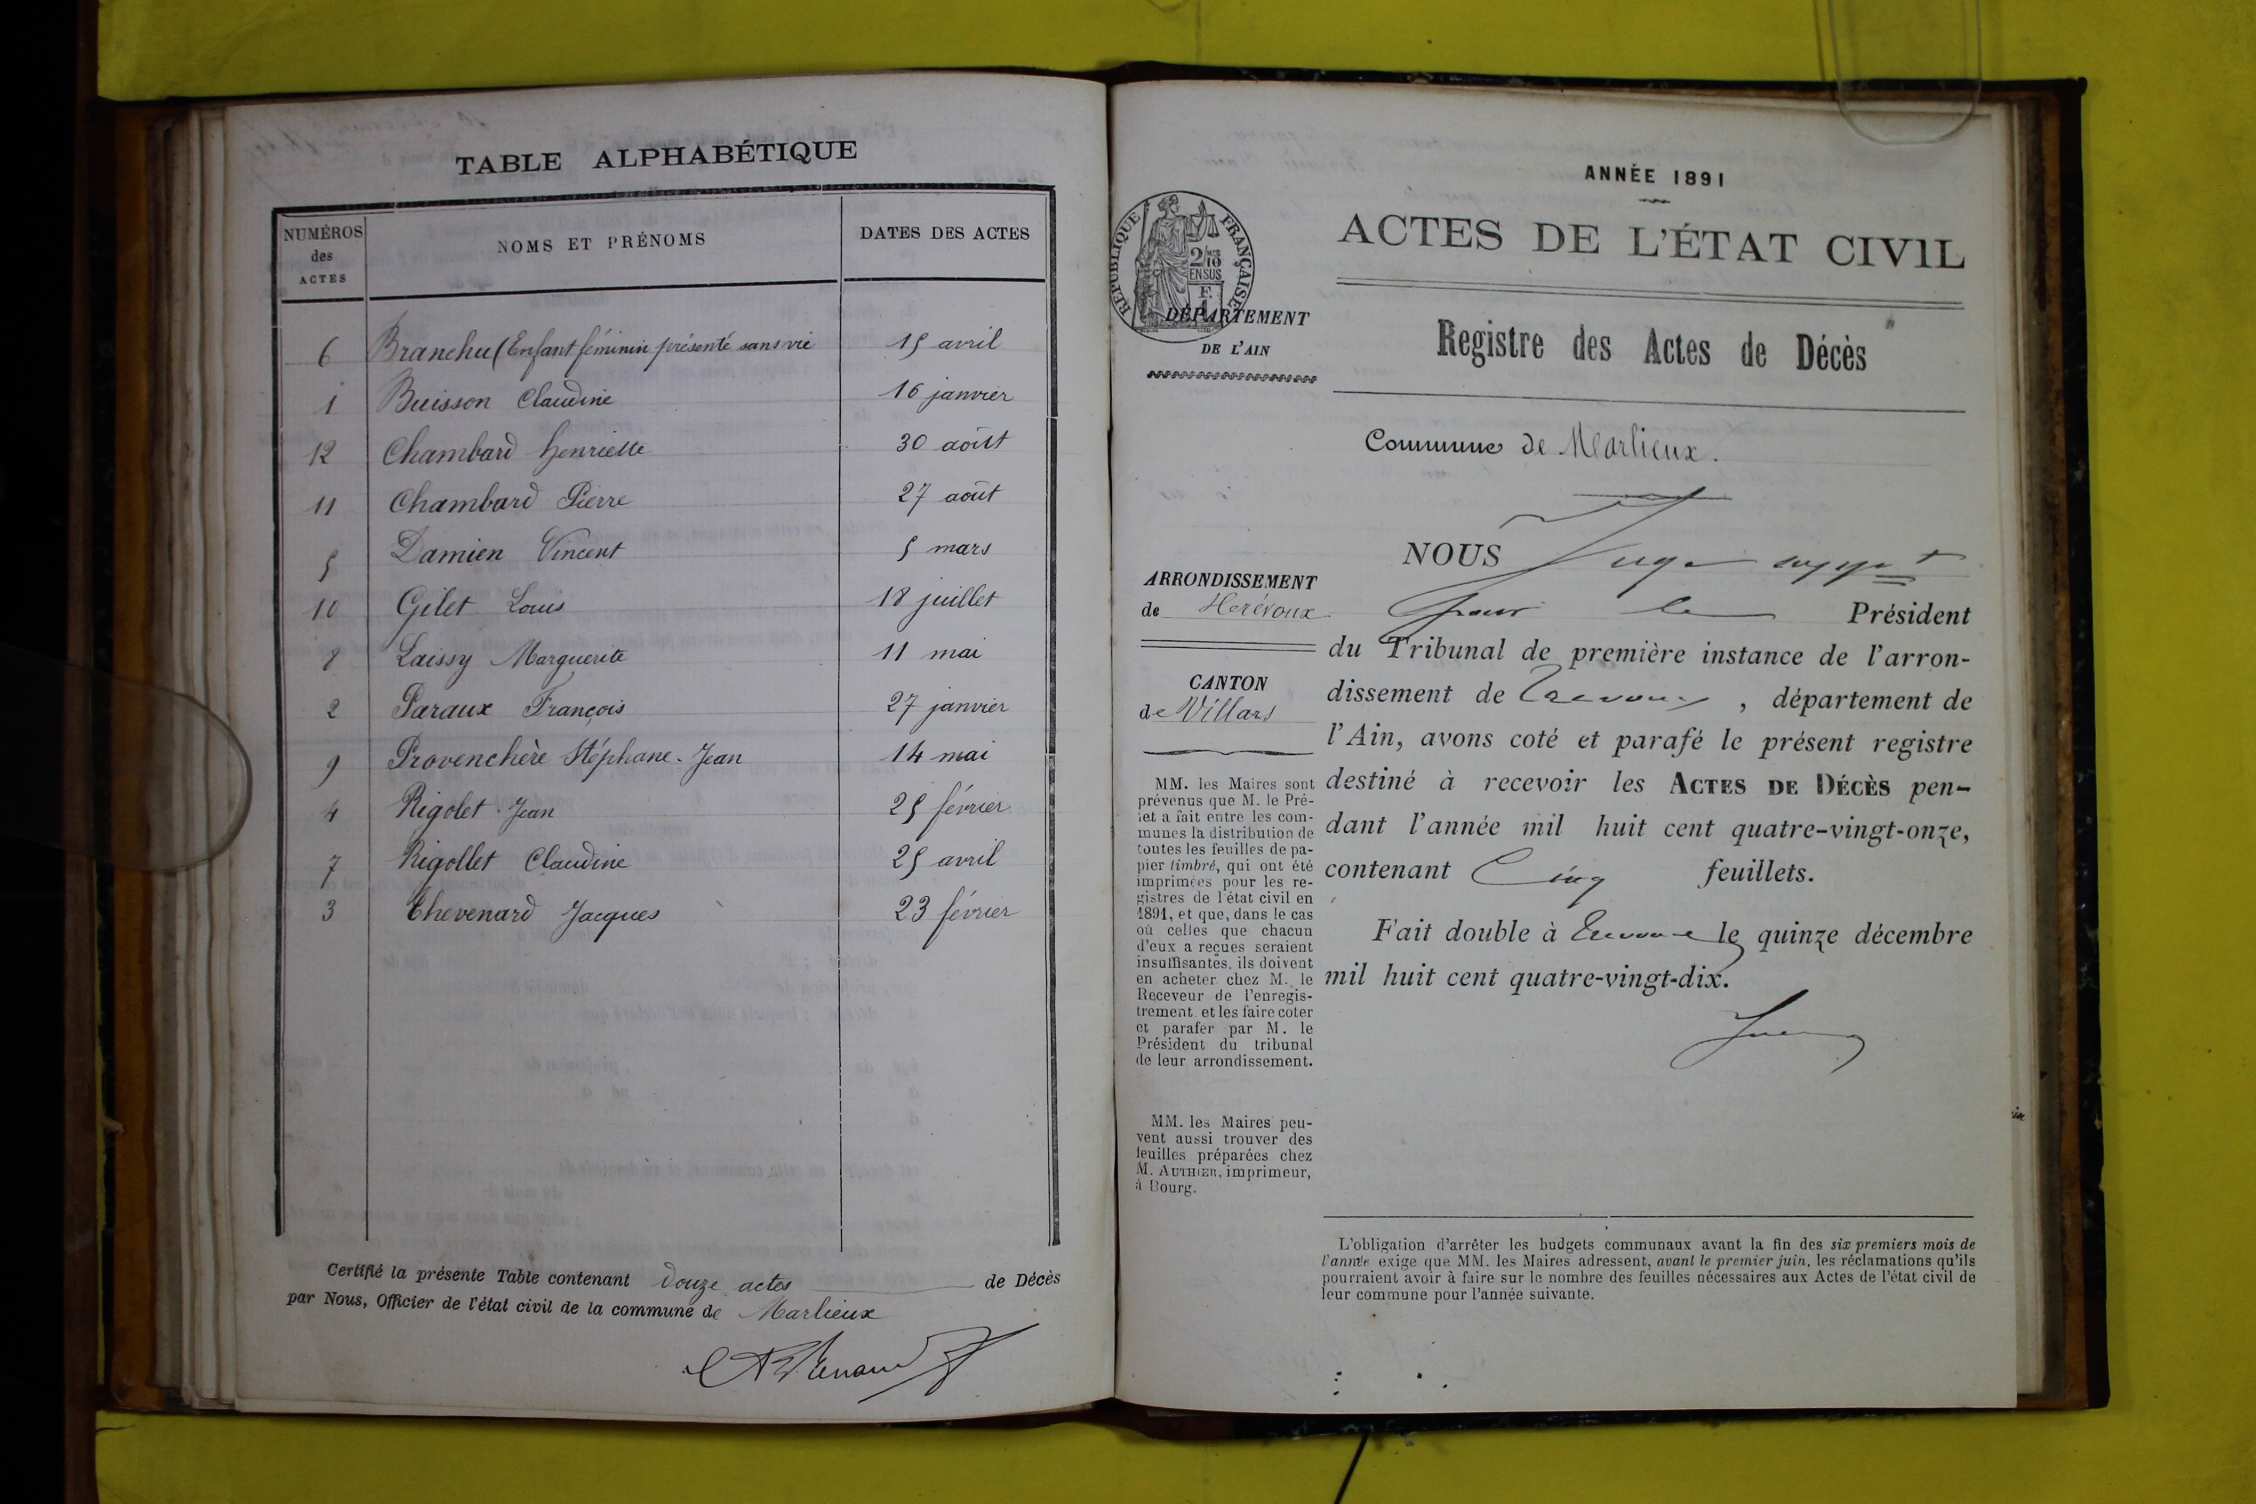 TABLE ALPHABÉTIQUE
NUMÉROS des ACTES
NOMS ET PRÉNOMS
DATES DES ACTES
6 Branchu (Enfant féminin présenté sans vie 15 avril
1 Buisson Claudine 16 janvier
12 Chambard Henriette 30 août
11 Chambard Pierre 27 août
5 Damien Vincent 5 mars
10 Gilet Louis 18 juillet
8 Laissy Marguerite 11 mai
2 Paraux François 27 janvier
9 Provenchère Stéphane-Jean 14 mai
4 Rigolet Jean 25 février
7 Rigollet Claudine 25 avril
3 Thevenard Jacques 23 février
Certifié la présente Table contenant douze actes de Décès
par Nous, Officier de l'état civil de la commune de Marlieux
ANNÉE 1891
ACTES DE L'ÉTAT CIVIL
RÉPUBLIQUE FRANÇAISE
2/10
EN SUS
DÉPARTEMENT
DE L'AIN
Registre des Actes de Décès
Commune de Marlieux.
ARRONDISSEMENT
de Trévoux
CANTON
de Villars
MM. les Maires sont
prévenus que M. le Pré-
fet a fait entre les com-
munes la distribution de
toutes les feuilles de pa-
pier timbré, qui ont été
imprimées pour les re-
gistres de l'état civil en
1891, et que, dans le cas
où celles que chacun
d'eux a reçues seraient
insuffisantes, ils doivent
en acheter chez M. le
Receveur de l'enregis-
trement et les faire coter
et parafer par M. le
Président du tribunal
de leur arrondissement.
MM. les Maires peu-
vent aussi trouver des
feuilles préparées chez
M. AUTHIER, imprimeur,
à Bourg.
NOUS Juge suppt
pour le Président
du Tribunal de première instance de l'arron-
dissement de Trevoux, département de
l'Ain, avons coté et parafé le présent registre
destiné à recevoir les ACTES DE DÉCÈS pen-
dant l'année mil huit cent quatre-vingt-onze,
contenant Cinq feuillets.
Fait double à Trevoux le quinze décembre
mil huit cent quatre-vingt-dix.
L'obligation d'arrêter les budgets communaux avant la fin des six premiers mois de
l'année exige que MM. les Maires adressent, avant le premier juin, les réclamations qu'ils
pourraient avoir à faire sur le nombre des feuilles nécessaires aux Actes de l'état civil de
leur commune pour l'année suivante.